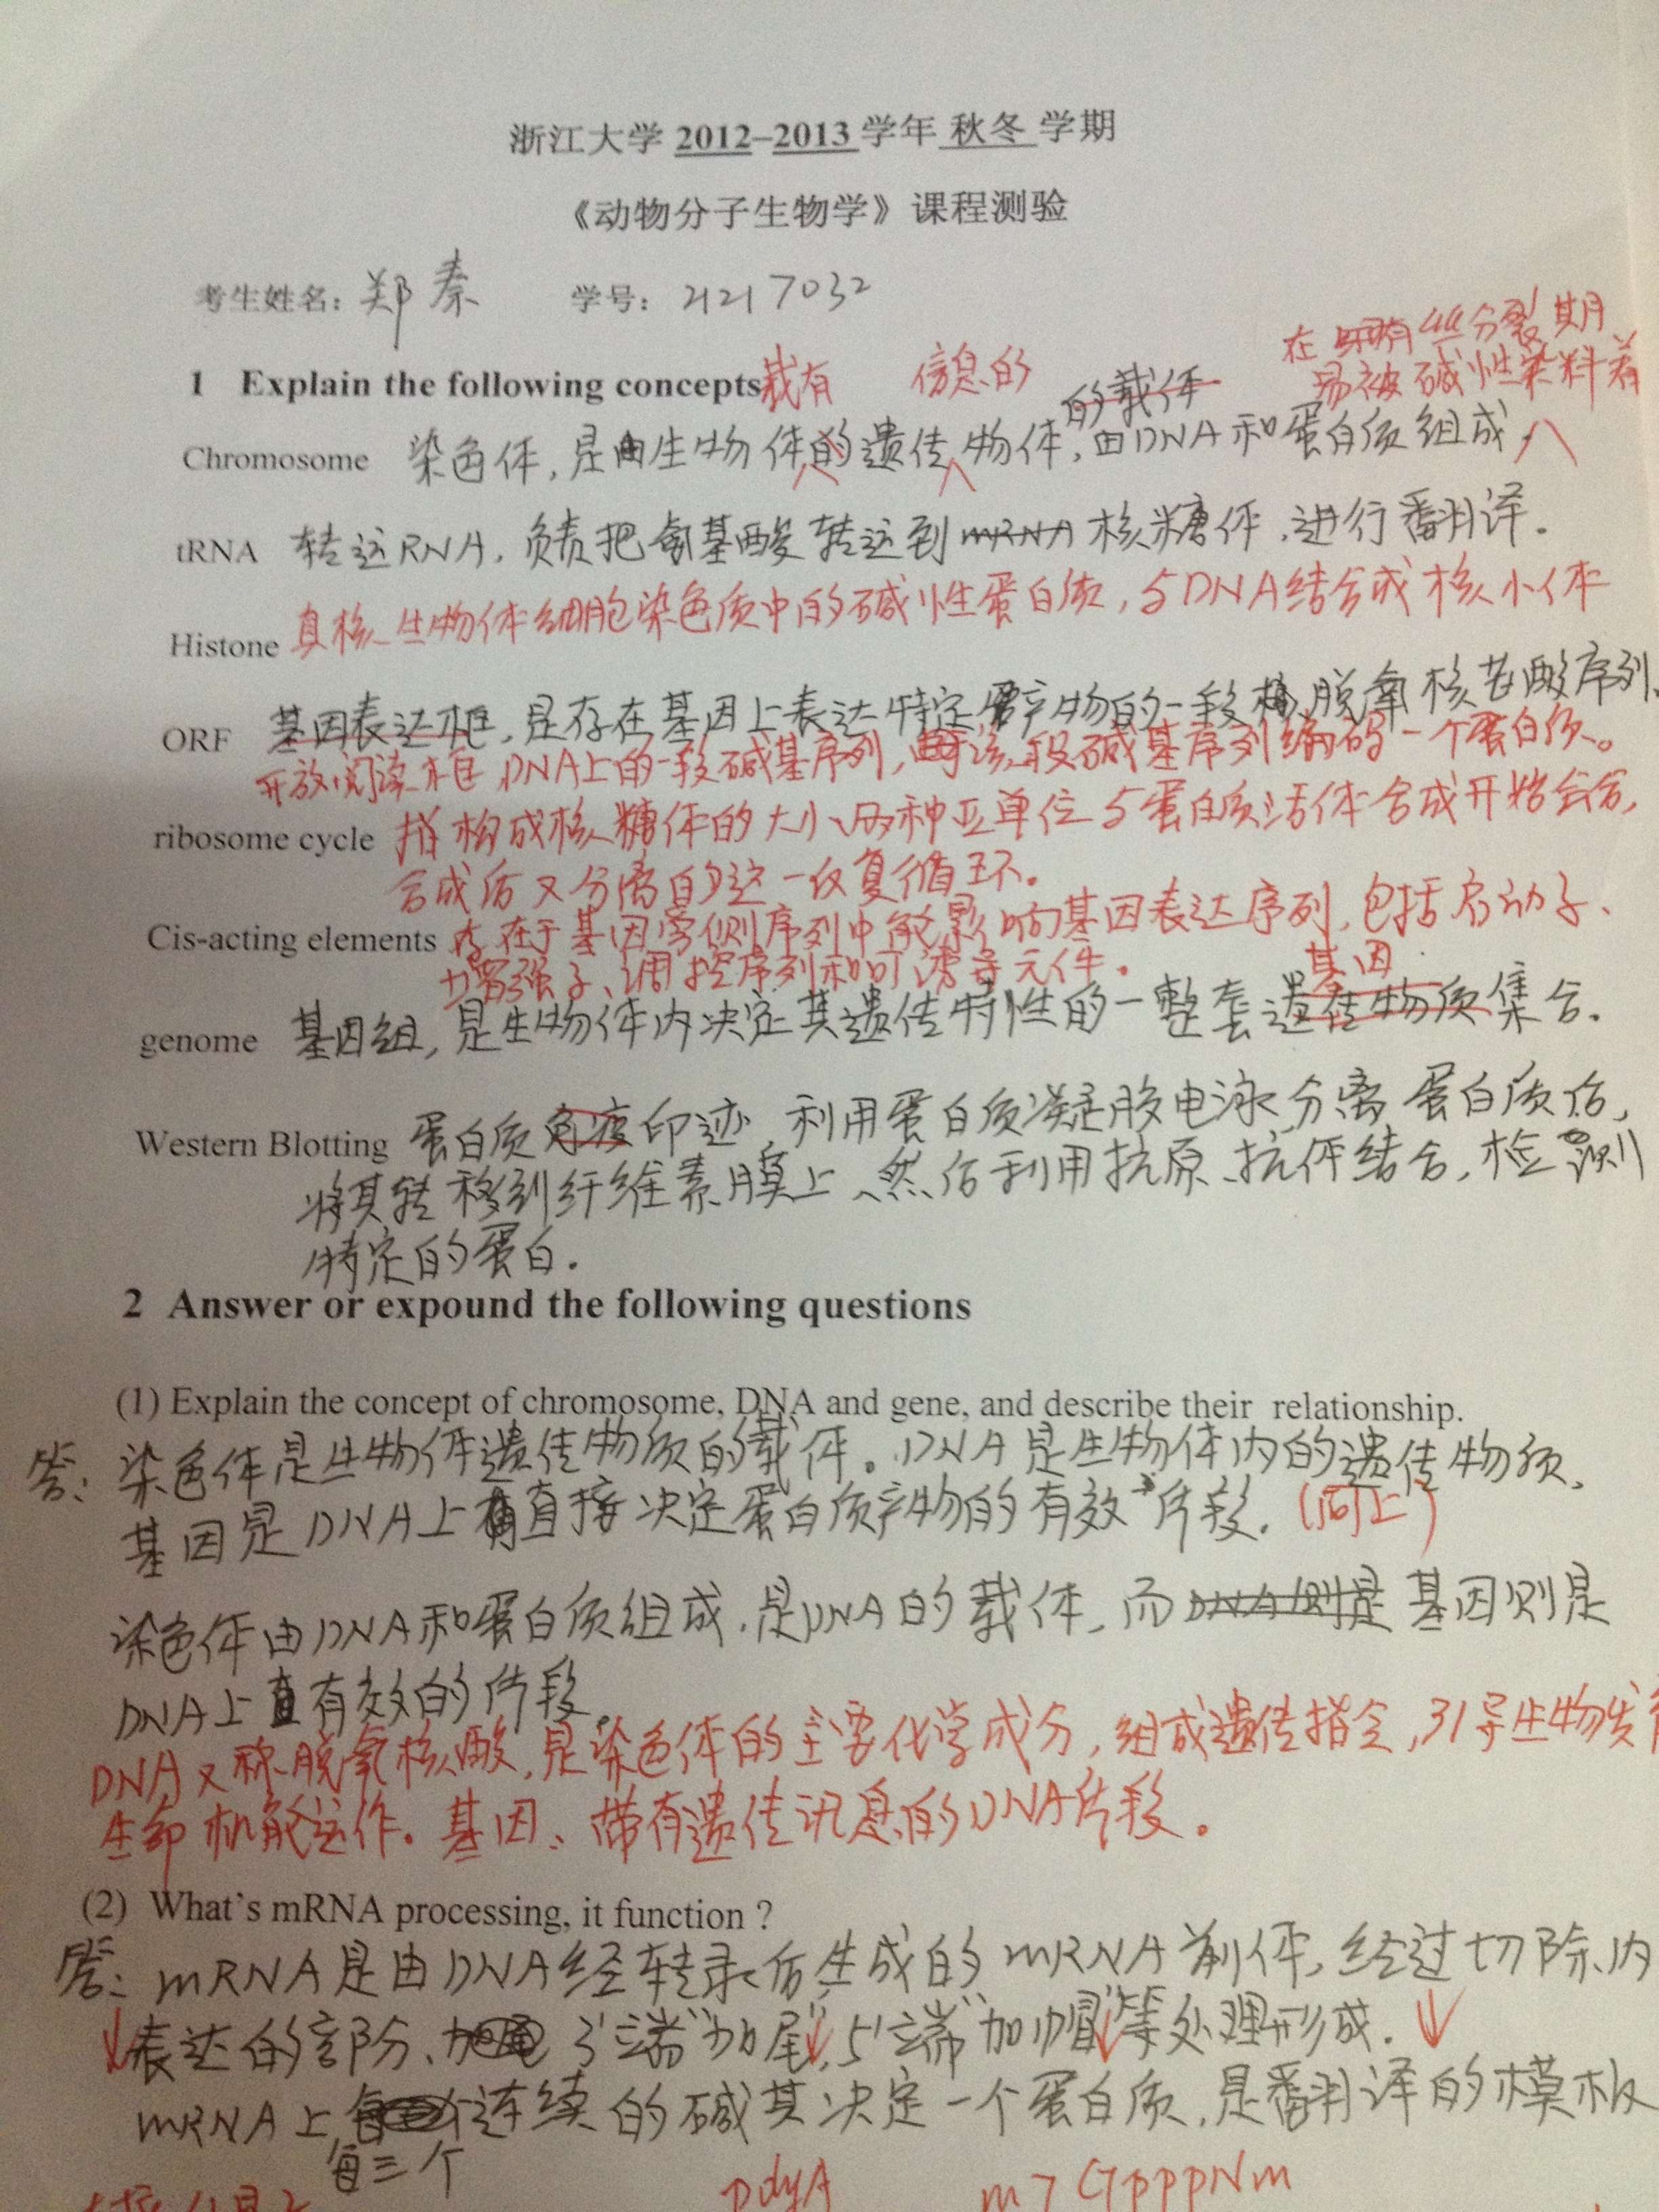 浙江大学 2012–2013 学年 秋冬 学期
《动物分子生物学》课程测验
考生姓名: 郑秦 学号: 21217032
在有丝分裂期
1 Explain the following concepts 载有 信息的 易被碱性染料着
的载体
Chromosome 染色体,是由生物体的遗传物体,由DNA和蛋白质组成,
tRNA 转运RNA,负责把氨基酸转运到mRNA核糖体,进行翻译.
真核生物体细胞染色质中的碱性蛋白质,与DNA结合成核小体
Histone
ORF 基因表达框,是存在基因上表达特定产物的一段脱氧核苷酸序列.
开放阅读框,DNA上的一段碱基序列,该段碱基序列编码一个蛋白质。
ribosome cycle 指构成核糖体的大小两种亚单位与蛋白质活体合成开始会合,
合成后又分离的这一反复循环.
Cis-acting elements 存在于基因旁侧序列中能影响基因表达序列,包括启动子、
增强子、调控序列和可诱导元件.
基因
genome 基因组,是生物体内决定其遗传特性的一整套遗传物质集合.
Western Blotting 蛋白质免疫印迹,利用蛋白质凝胶电泳分离蛋白质后,
将其转移到纤维素膜上、然后利用抗原、抗体结合,检测
特定的蛋白.
2 Answer or expound the following questions
(1) Explain the concept of chromosome, DNA and gene, and describe their relationship.
答: 染色体是生物体遗传物质的载体。DNA是生物体内的遗传物质,
基因是DNA上直接决定蛋白质产物的有效片段.(同上)
染色体由DNA和蛋白质组成,是DNA的载体,而DNA则是基因则是
DNA上有效的片段.
DNA又称脱氧核酸,是染色体的主要化学成分,组成遗传指令,引导生物发育
生命机能运作。基因、带有遗传讯息的DNA片段。
(2) What's mRNA processing, it function ?
答: mRNA是由DNA经转录后生成的mRNA前体,经过切除内
表达的部分、3'端"加尾",5'端"加帽"等处理形成.
mRNA上连续的碱基决定一个蛋白质,是翻译的模板
每三个
PolyA m7GpppNm